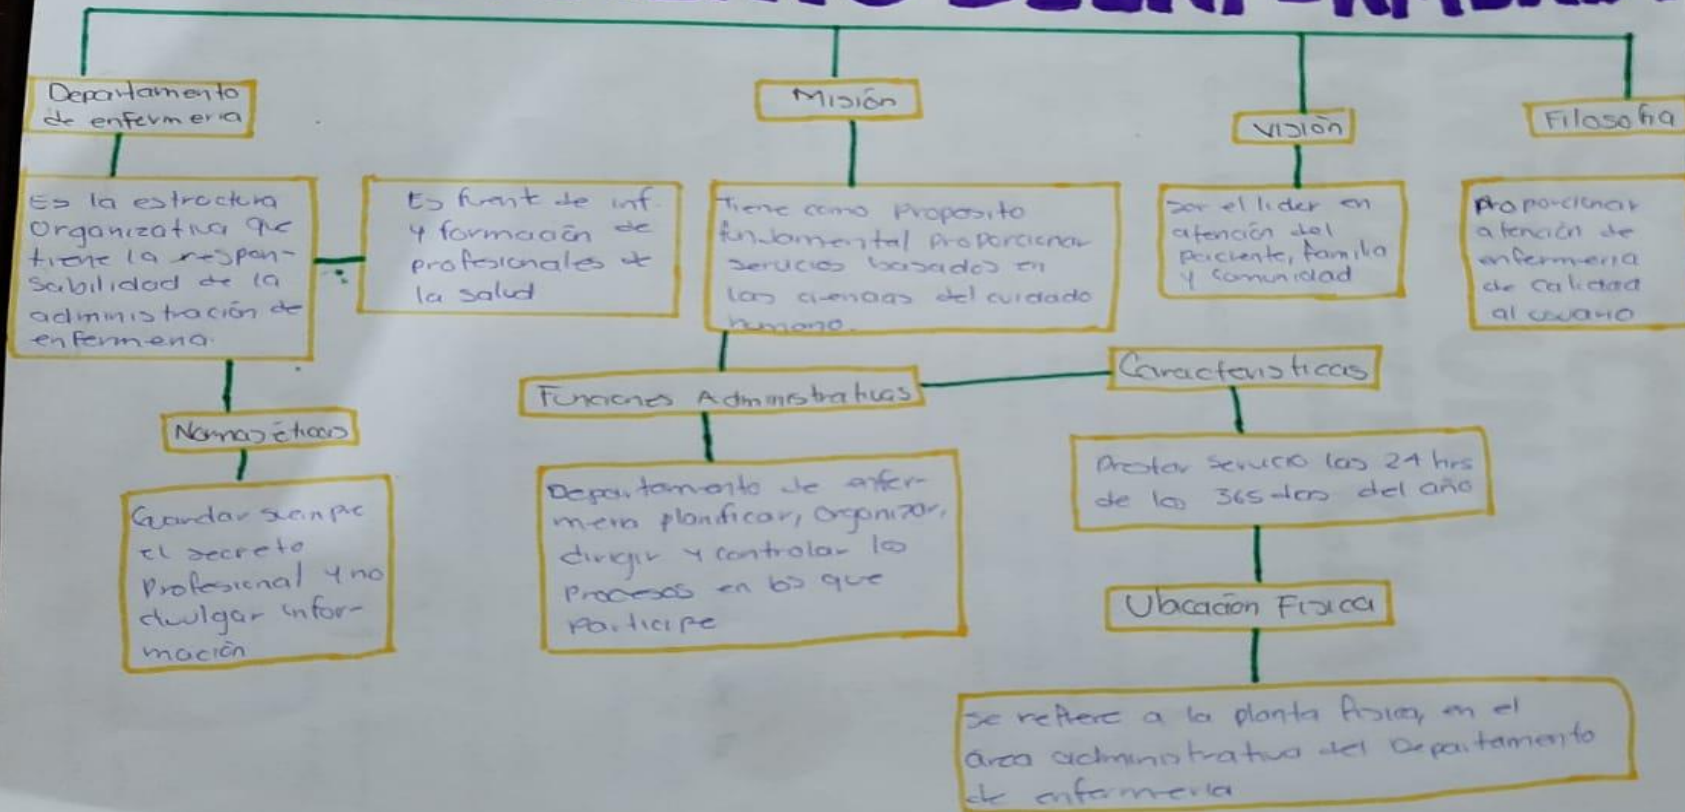 Departamento
de enfermeria
Es la estructura
Organizativa que
tiene la respon-
sabilidad de la
administración de
enfermeria.
Es fuente de inf.
y formación de
profesionales de
la salud
Normas éticas
Guardar siempre
el secreto
Profesional y no
divulgar infor-
mación
Misión
Tiene como Proposito
fundamental proporcionar
servicios basados en
las ciencias del cuidado
humano.
Funciones Administrativas
Departamento de enfer-
meria planificar, organizar,
dirigir y controlar los
Procesos en los que
Participe
Caracteristicas
Prestar servicio las 24 hrs
de los 365 dias del año
Ubicación Fisica
Se refiere a la planta fisica, en el
área administrativa del Departamento
de enfermeria
Visión
Ser el lider en
atención del
paciente, familia
y comunidad
Filosofia
Proporcionar
atención de
enfermeria
de calidad
al usuario